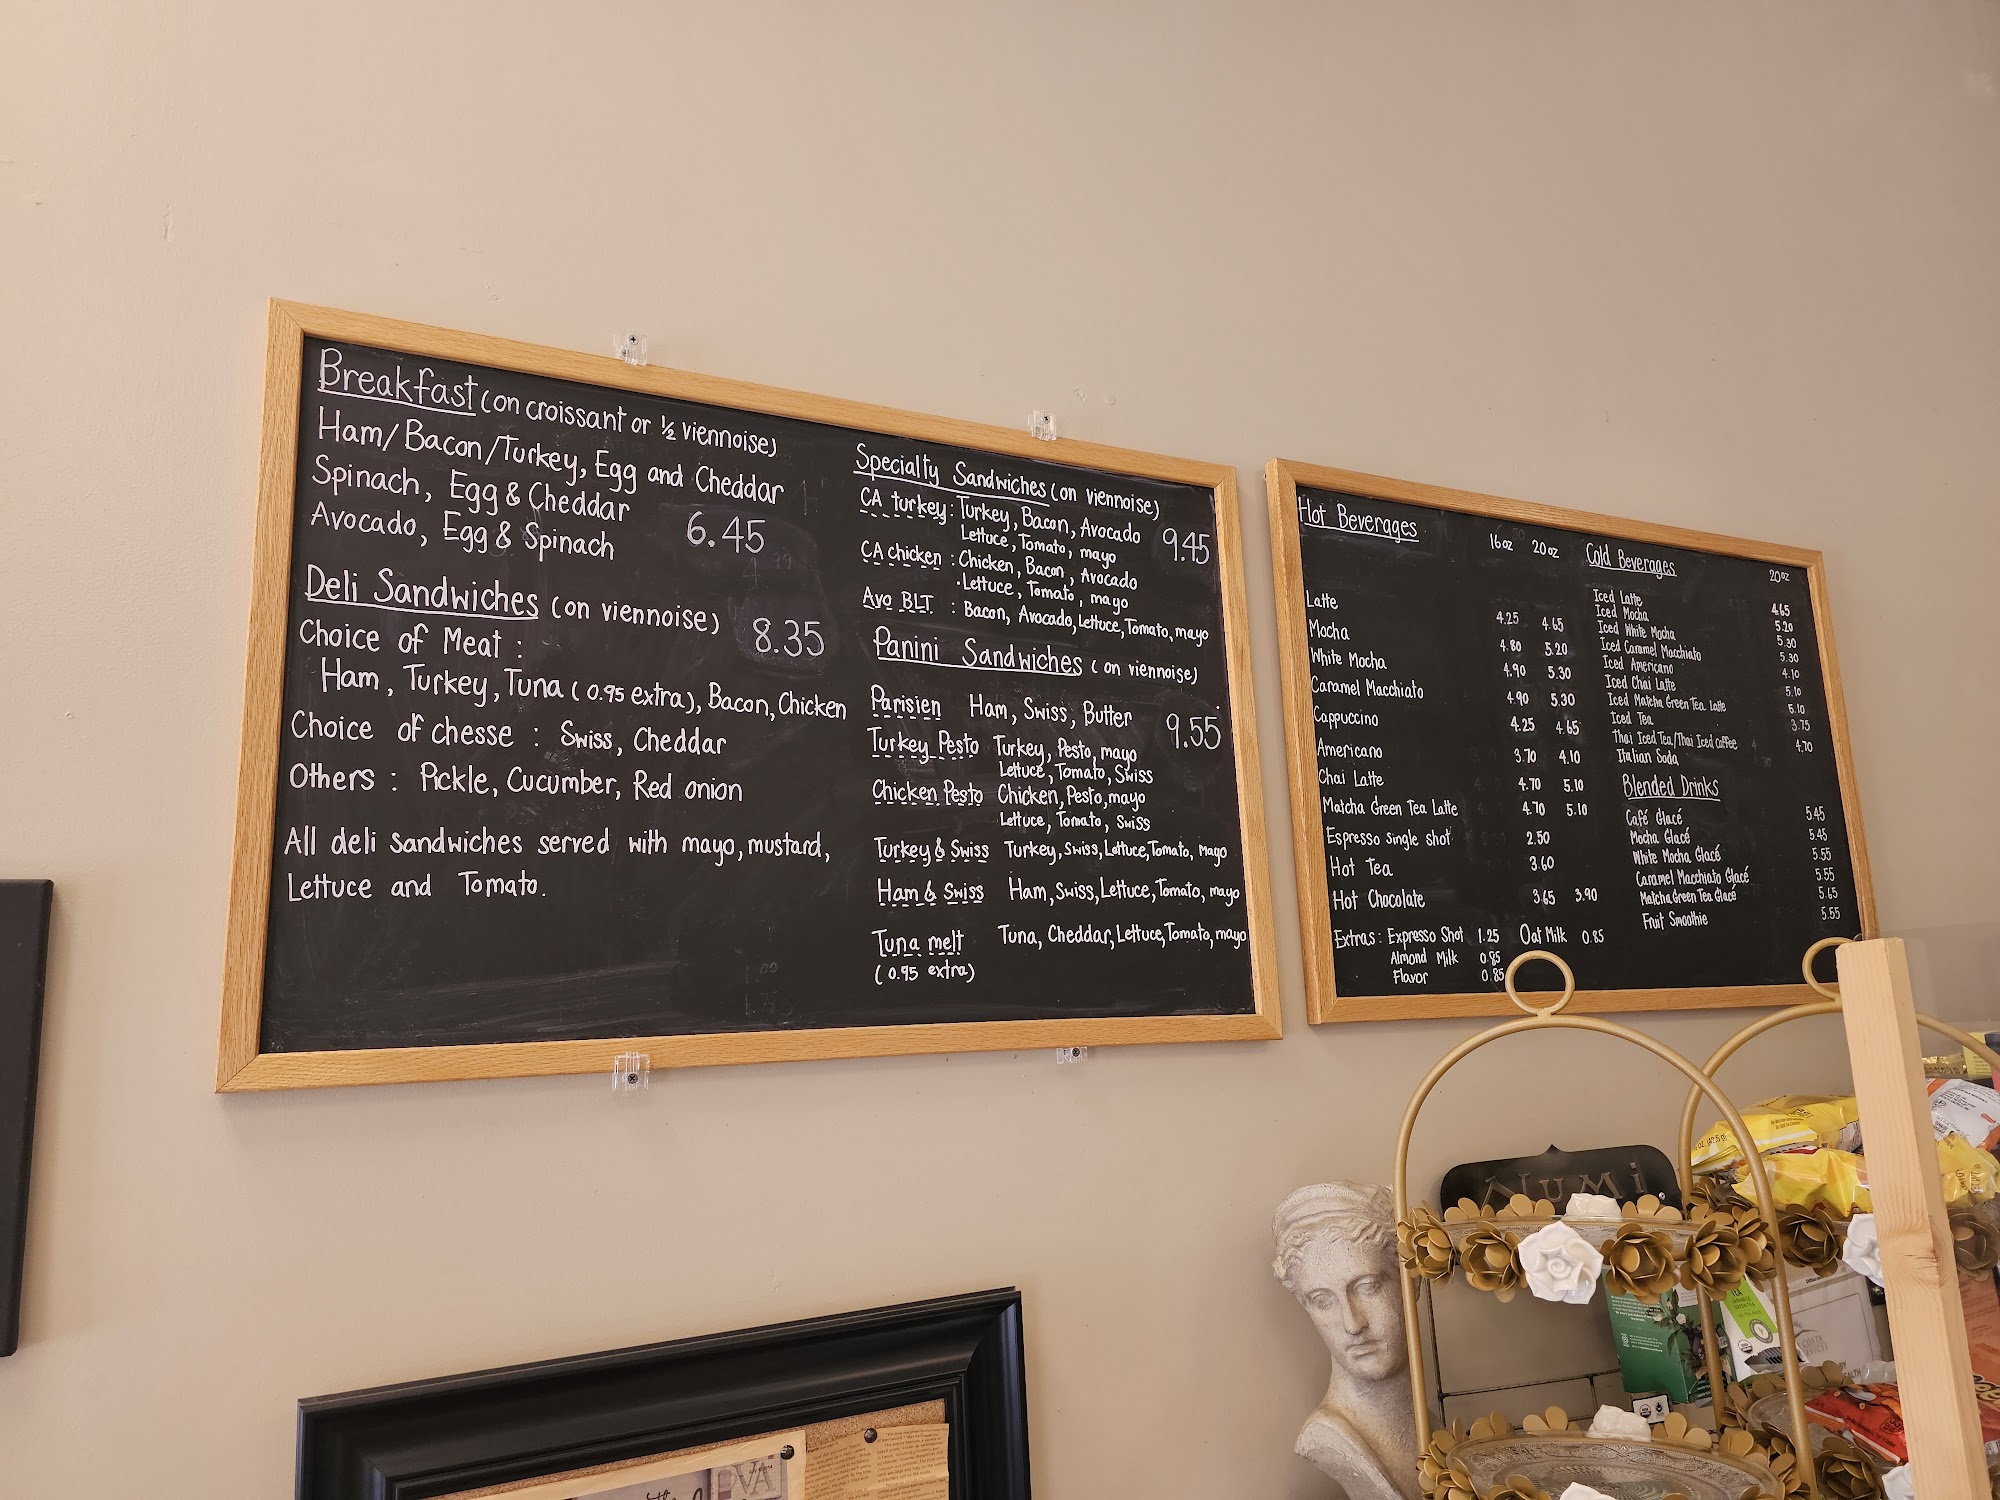 Breakfast (on croissant or ½ viennoise)
Ham/Bacon/Turkey, Egg and Cheddar
Spinach, Egg & Cheddar
Avocado, Egg & Spinach 6.45
Deli Sandwiches (on viennoise) 8.35
Choice of Meat :
Ham, Turkey, Tuna (0.95 extra), Bacon, Chicken
Choice of chesse : Swiss, Cheddar
Others : Pickle, Cucumber, Red onion
All deli sandwiches served with mayo, mustard,
Lettuce and Tomato.
Specialty Sandwiches (on viennoise)
CA turkey : Turkey, Bacon, Avocado 9.45
Lettuce, Tomato, mayo
CA chicken : Chicken, Bacon, Avocado
Lettuce, Tomato, mayo
Avo BLT : Bacon, Avocado, Lettuce, Tomato, mayo
Panini Sandwiches (on viennoise)
Parisien Ham, Swiss, Butter 9.55
Turkey Pesto Turkey, Pesto, mayo
Lettuce, Tomato, Swiss
Chicken Pesto Chicken, Pesto, mayo
Lettuce, Tomato, Swiss
Turkey & Swiss Turkey, Swiss, Lettuce, Tomato, mayo
Ham & Swiss Ham, Swiss, Lettuce, Tomato, mayo
Tuna melt Tuna, Cheddar, Lettuce, Tomato, mayo
(0.95 extra)
Hot Beverages 16oz 20oz
Latte 4.25 4.65
Mocha 4.80 5.20
White Mocha 4.90 5.30
Caramel Macchiato 4.90 5.30
Cappuccino 4.25 4.65
Americano 3.70 4.10
Chai Latte 4.70 5.10
Matcha Green Tea Latte 4.70 5.10
Espresso single shot 2.50
Hot Tea 3.60
Hot Chocolate 3.65 3.90
Extras : Expresso Shot 1.25 Oat Milk 0.85
Almond Milk 0.85
Flavor 0.85
Cold Beverages 20oz
Iced Latte 4.65
Iced Mocha 5.20
Iced White Mocha 5.30
Iced Caramel Macchiato 5.30
Iced Americano 4.10
Iced Chai Latte 5.10
Iced Matcha Green Tea Latte 5.10
Iced Tea 3.75
Thai Iced Tea/Thai Iced coffee 4.70
Italian Soda
Blended Drinks
Café Glacé 5.45
Mocha Glacé 5.45
White Mocha Glacé 5.55
Caramel Macchiato Glacé 5.55
Matcha Green Tea Glacé 5.65
Fruit Smoothie 5.55
ALUMI
PVA